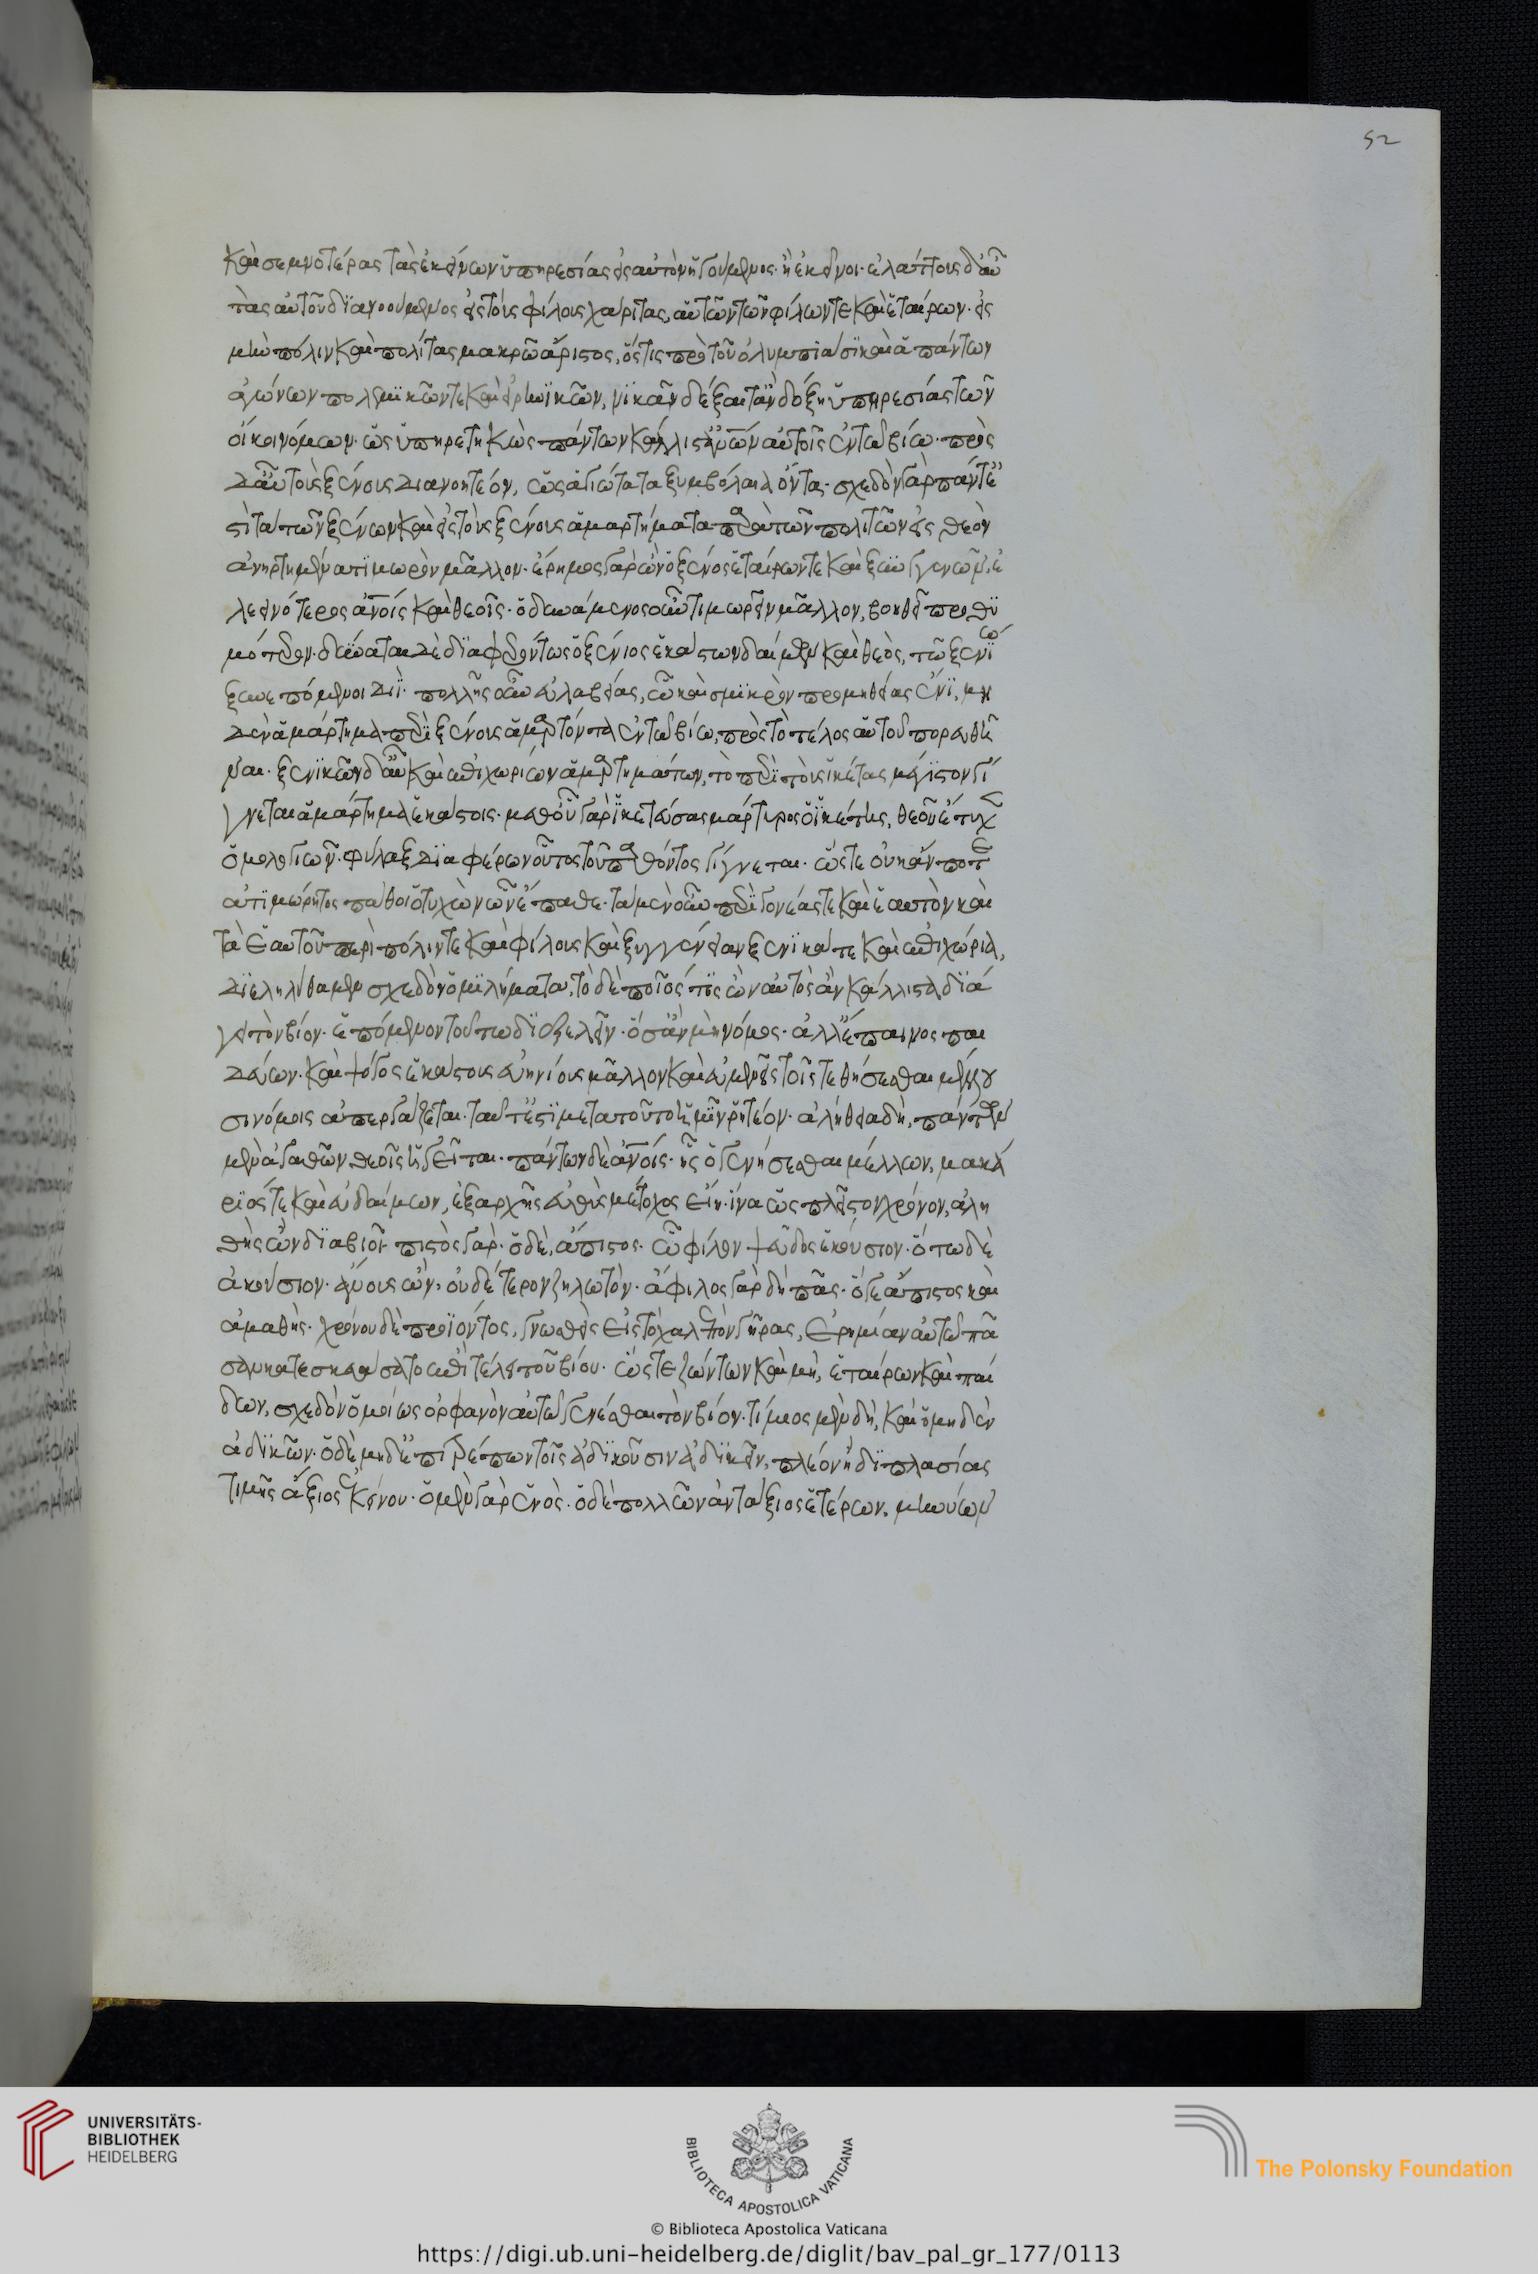 52
καὶ σεμνοτέρας τὰς ἐκείνων ὑπηρεσίας εἰς αὐτὸν ἡγούμενος ἢ ἐκεῖνοι· ἐλάττους δ' αὖ
τὰς αὐτοῦ διανοούμενος εἰς τοὺς φίλους χάριτας, αὐτῶν τῶν φίλων τε καὶ ἑταίρων· εἰς
μὴν πόλιν καὶ πολίτας μακρῶ ἄριστος, ὅστις πρὸ τοῦ ὀλυμπίασι καὶ ἁπάντων
ἀγώνων πολεμικῶν τε καὶ εἰρηνικῶν, νικᾶν δέξαιτ' ἂν δόξη ὑπηρεσίας τῶν
οἴκοι νόμων· ὡς ὑπηρετηκὼς πάντων κάλλιστ' ἀνθρώπων αὐτοῖς ἐν τῶ βίω· πρὸς
δ' αὖ τοὺς ξένους διανοητέον, ὡς ἁγιώτατα ξυμβόλαια ὄντα· σχεδὸν γὰρ πάντ' ἐ
στὶ τὰ τῶν ξένων καὶ εἰς τοὺς ξένους ἁμαρτήματα παρὰ τὰ τῶν πολιτῶν εἰς θεὸν
ἀνηρτημένα τιμωρὸν μᾶλλον· ἔρημος γὰρ ὢν ὁ ξένος ἑταίρων τε καὶ ξυγγενῶν, ἐ
λεεινότερος ἀνοις καὶ θεοῖς· ὁ δυνάμενος οὖν τιμωρεῖν μᾶλλον, βοηθεῖ προθυ
μότερον· δύναται δὲ διαφερόντως ὁ ξένιος ἑκάστων δαίμων καὶ θεὸς, τῶ ξενίω
ξυνεπόμενοι διί· πολλῆς οὖν εὐλαβείας, ὧ καὶ σμικρὸν προμηθείας ἐνῆ, μη
δὲν ἁμάρτημα περὶ ξένους ἁμαρτόντα ἐν τῶ βίω, πρὸς τὸ τέλος αὐτοῦ πορευθῆ
ναι· ξενικῶν δ' αὖ καὶ ἐπιχωρίων ἁμαρτημάτων, τὸ περὶ τοὺς ἱκέτας μέγιστον γί
γνεται ἁμάρτημα ἑκάστοις· μεθ' οὗ γὰρ ἱκετεύσας μάρτυρος ὁ ἱκέτης, θεοῦ ἔτυχ
ὁμολογιῶν· φύλαξ διαφέρων οὗτος τοῦ παθόντος γίγνεται· ὥστε οὐκ ἄν ποτε
ἀτιμώρητος πάθοι ὁ τυχὼν ὧν ἔπαθε· τὰ μὲν οὖν περὶ γονέας τε καὶ ἑαυτὸν καὶ
τὰ ἑαυτοῦ περὶ πόλιν τε καὶ φίλους καὶ ξυγγένειαν ξενικά τε καὶ ἐπιχώρια,
διεληλύθαμεν σχεδὸν ὁμιλήματα, τὸ δὲ ποῖός τις ὢν αὐτὸς ἂν κάλλιστα διά
γοι τὸν βίον· ἑπόμενον τούτω διεξελθεῖν· ὅσ' ἂν μὴ νόμος· ἀλλ' ἔπαινος παι
δεύων· καὶ ψόγος ἑκάστους εὐηνίους μᾶλλον καὶ εὐμενεῖς τοῖς τεθήσεσθαι μέλλου
σι νόμοις ἀπεργάζεται· ταῦτ' ἐστὶ μετὰ τοῦτο ἡμῖν ῥητέον· ἀλήθεια δὴ, πάντων
μὲν ἀγαθῶν θεοῖς ἡγεῖται· πάντων δὲ ἀνοις· ἧς ὁ γενήσεσθαι μέλλων, μακά
ριός τε καὶ εὐδαίμων, ἐξ ἀρχῆς εὐθὺς μέτοχος εἴη· ἵνα ὡς πλεῖστον χρόνον, ἀλη
θὴς ὢν διαβιοῖ· πιστὸς γάρ· ὁ δὲ, ἄπιστος· ὧ φίλον ψεῦδος ἑκούσιον· ὅτω δὲ
ἀκούσιον· ἄνους ὧν· οὐδέτερον ζηλωτόν· ἄφιλος γὰρ δὴ πᾶς· ὅ γε ἄπιστος καὶ
ἀμαθής· χρόνου δὲ προϊόντος, γνωσθεὶς εἰς τὸ χαλεπὸν γῆρας, ἐρημίαν αὑτῶ πᾶ
σαν κατεσκευάσατο ἐπὶ τέλει τοῦ βίου· ὥστε ζώντων καὶ μὴ, ἑταίρων καὶ παί
δων, σχεδὸν ὁμοίως ὀρφανὸν αὐτῶ γενέσθαι τὸν βίον· τίμιος μὲν δὴ, καὶ ὁ μηδὲν
ἀδικῶν· ὁ δὲ μηδ' ἐπιτρέπων τοῖς ἀδικοῦσιν ἀδικεῖν, πλέον ἢ διπλασίας
τιμῆς ἄξιος ἐκείνου· ὁ μὲν γὰρ ἑνός· ὁ δὲ πολλῶν ἀντάξιος ἑτέρων, μηνύων
UNIVERSITÄTS-
BIBLIOTHEK
HEIDELBERG
BIBLIOTECA APOSTOLICA VATICANA
The Polonsky Foundation
© Biblioteca Apostolica Vaticana
https://digi.ub.uni-heidelberg.de/diglit/bav_pal_gr_177/0113